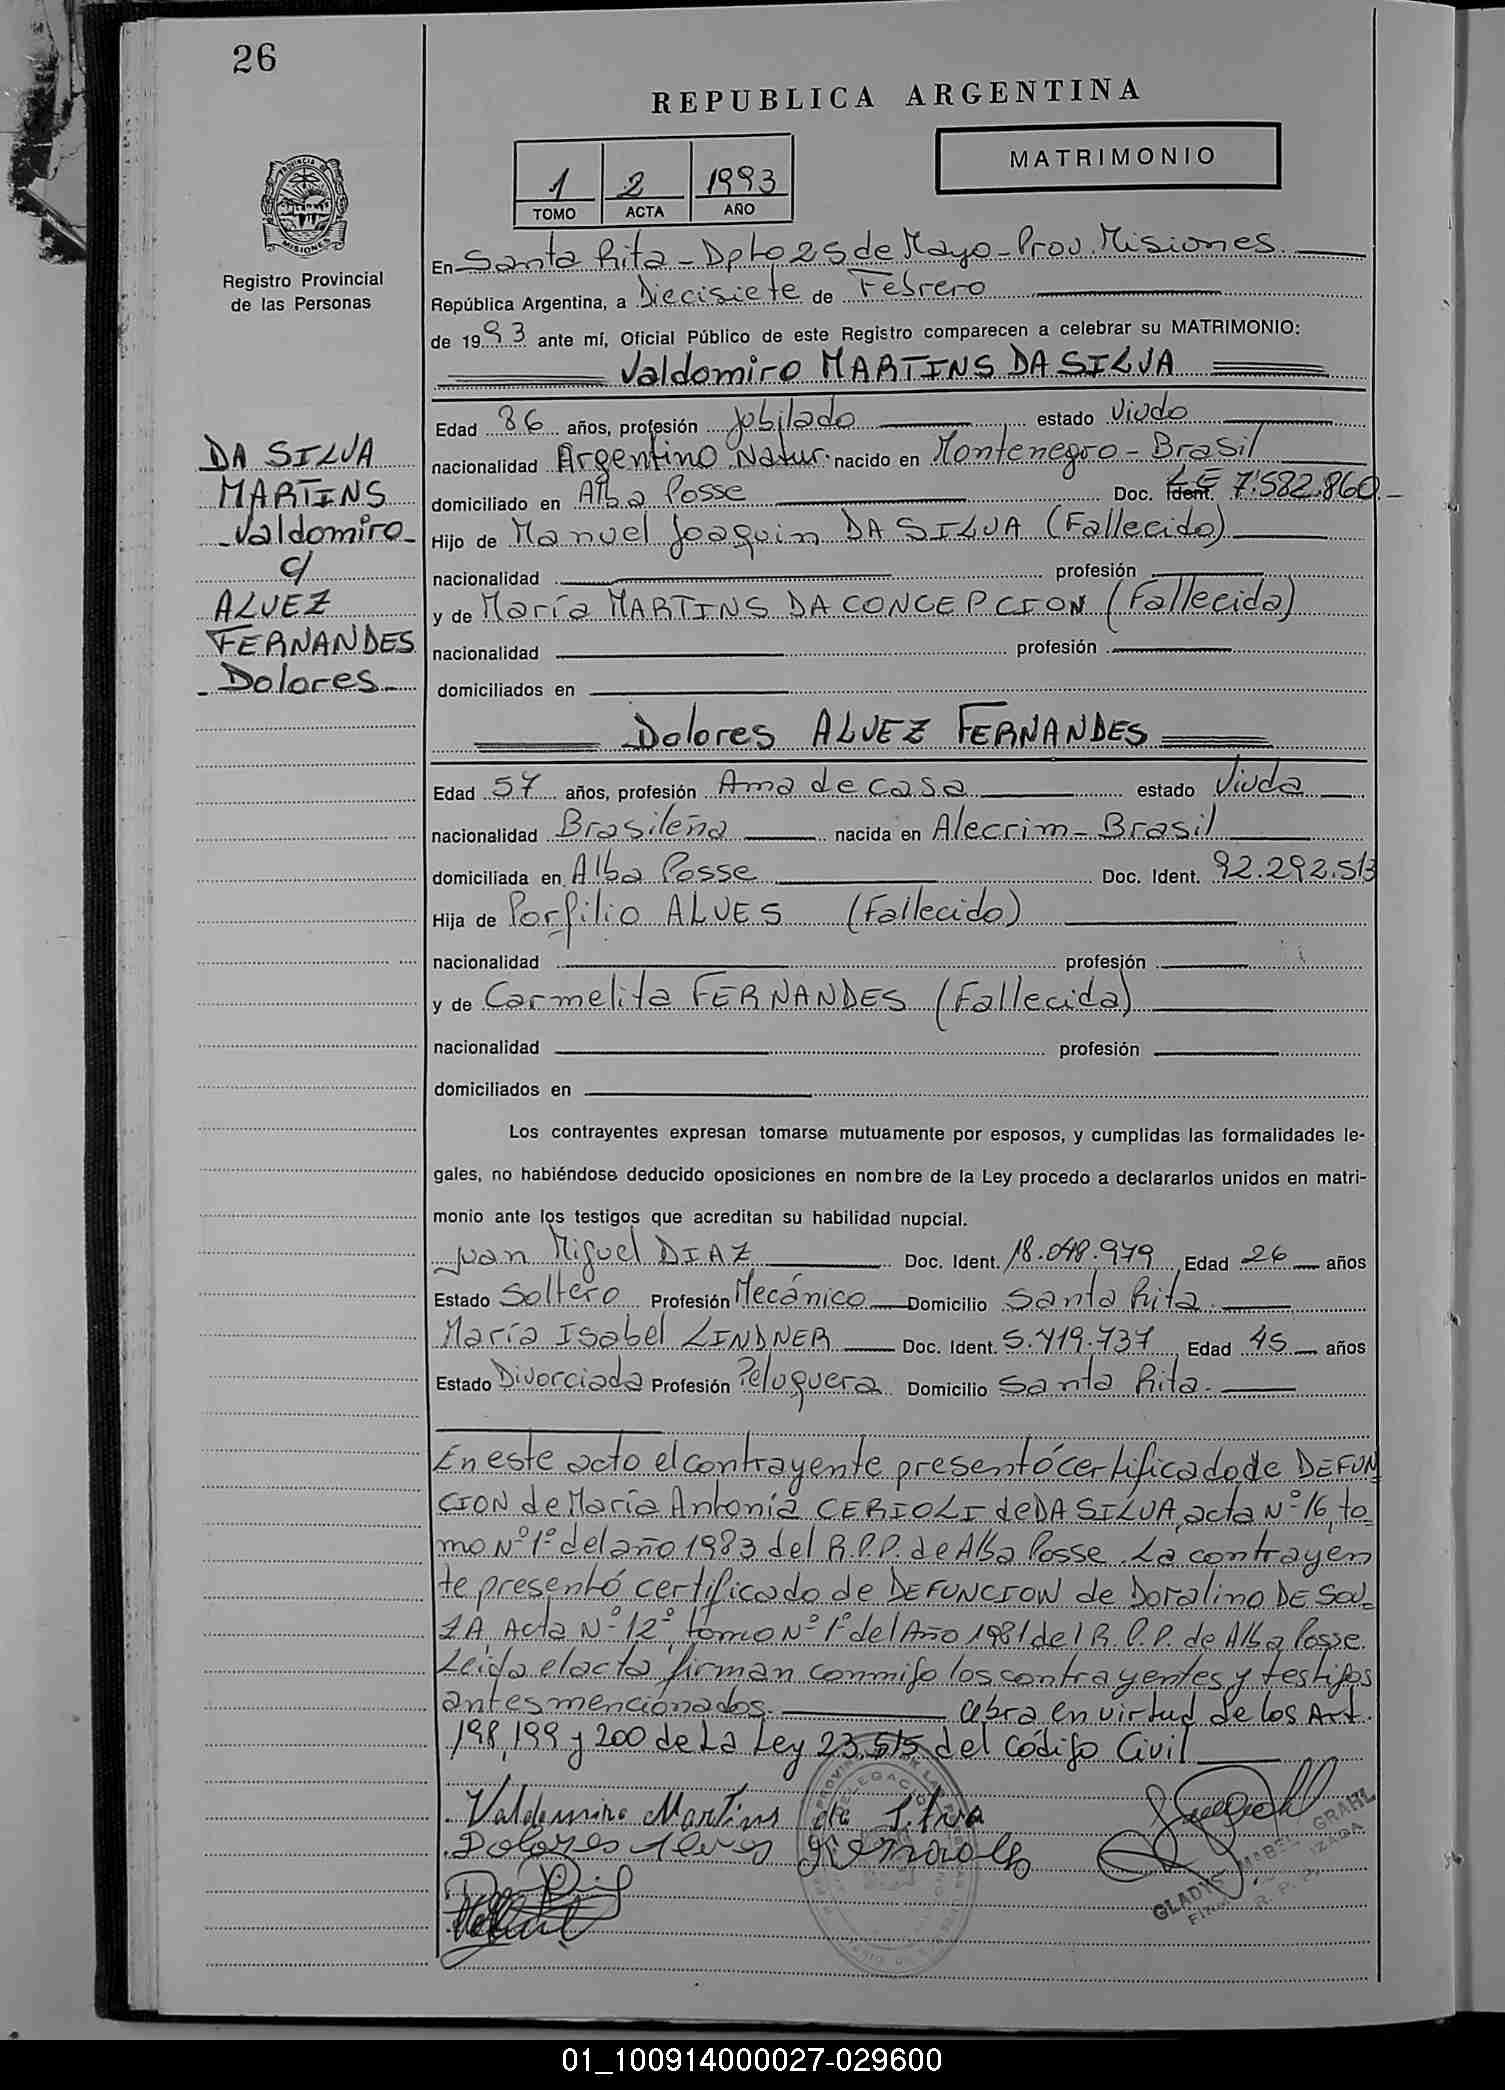 26
REPUBLICA ARGENTINA
MATRIMONIO
1 2 1993
TOMO ACTA AÑO
PROVINCIA DE
MISIONES
Registro Provincial
de las Personas
En Santa Rita - Dpto 25 de Mayo - Prov. Misiones
República Argentina, a Diecisiete de Febrero
de 1993 ante mí, Oficial Público de este Registro comparecen a celebrar su MATRIMONIO:
Valdomiro MARTINS DA SILVA
Edad 86 años, profesión Jubilado estado Viudo
nacionalidad Argentino Natur. nacido en Montenegro - Brasil
domiciliado en Alba Posse Doc. Ident. LE 7.582.860 -
Hijo de Manuel Joaquin DA SILVA (Fallecido)
nacionalidad profesión
y de María MARTINS DA CONCEPCION (Fallecida)
nacionalidad profesión
domiciliados en
DA SILVA
MARTINS
- Valdomiro -
c/
ALVEZ
FERNANDES
- Dolores -
Dolores ALVEZ FERNANDES
Edad 57 años, profesión Ama de casa estado Viuda
nacionalidad Brasileña nacida en Alecrim - Brasil
domiciliada en Alba Posse Doc. Ident. 92.292.513
Hija de Porfilio ALVES (Fallecido)
nacionalidad profesión
y de Carmelita FERNANDES (Fallecida)
nacionalidad profesión
domiciliados en
Los contrayentes expresan tomarse mutuamente por esposos, y cumplidas las formalidades le-
gales, no habiéndose deducido oposiciones en nombre de la Ley procedo a declararlos unidos en matri-
monio ante los testigos que acreditan su habilidad nupcial.
Juan Miguel DIAZ Doc. Ident. 18.048.979 Edad 26 años
Estado Soltero Profesión Mecánico Domicilio Santa Rita
María Isabel LINDNER Doc. Ident. 5.719.737 Edad 45 años
Estado Divorciada Profesión Peluquera Domicilio Santa Rita.
En este acto el contrayente presentó certificado de DEFUN
CION de María Antonia CERIOLI de DA SILVA, acta Nº 16, to-
mo Nº 1º del año 1983 del R.P.P. de Alba Posse. La contrayen
te presentó certificado de DEFUNCION de Doralino DE SOU-
ZA, Acta Nº 12º, tomo Nº 1º del Año 1981 del R.P.P. de Alba Posse.
Leida el acta firman conmigo los contrayentes y testigos
antes mencionados. Cebra en virtud de los Art.
198, 199 y 200 de La Ley 23.515 del Código Civil
Valdomiro Martins da Silva
Dolores Alves Fernandes
GLADYS MABEL GRAHL
01_100914000027-029600